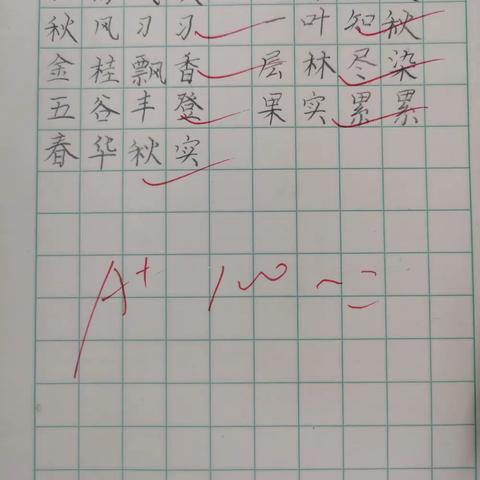 秋风习习 一叶知秋
金桂飘香 层林尽染
五谷丰登 果实累累
春华秋实
A+ 100